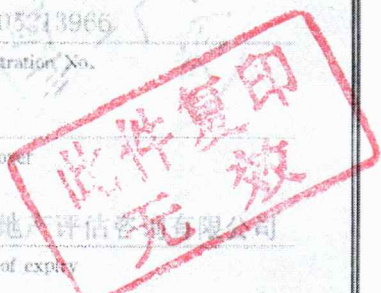 05213966
tration No.
此件复印
无效
地产评估咨询有限公司
of expiry